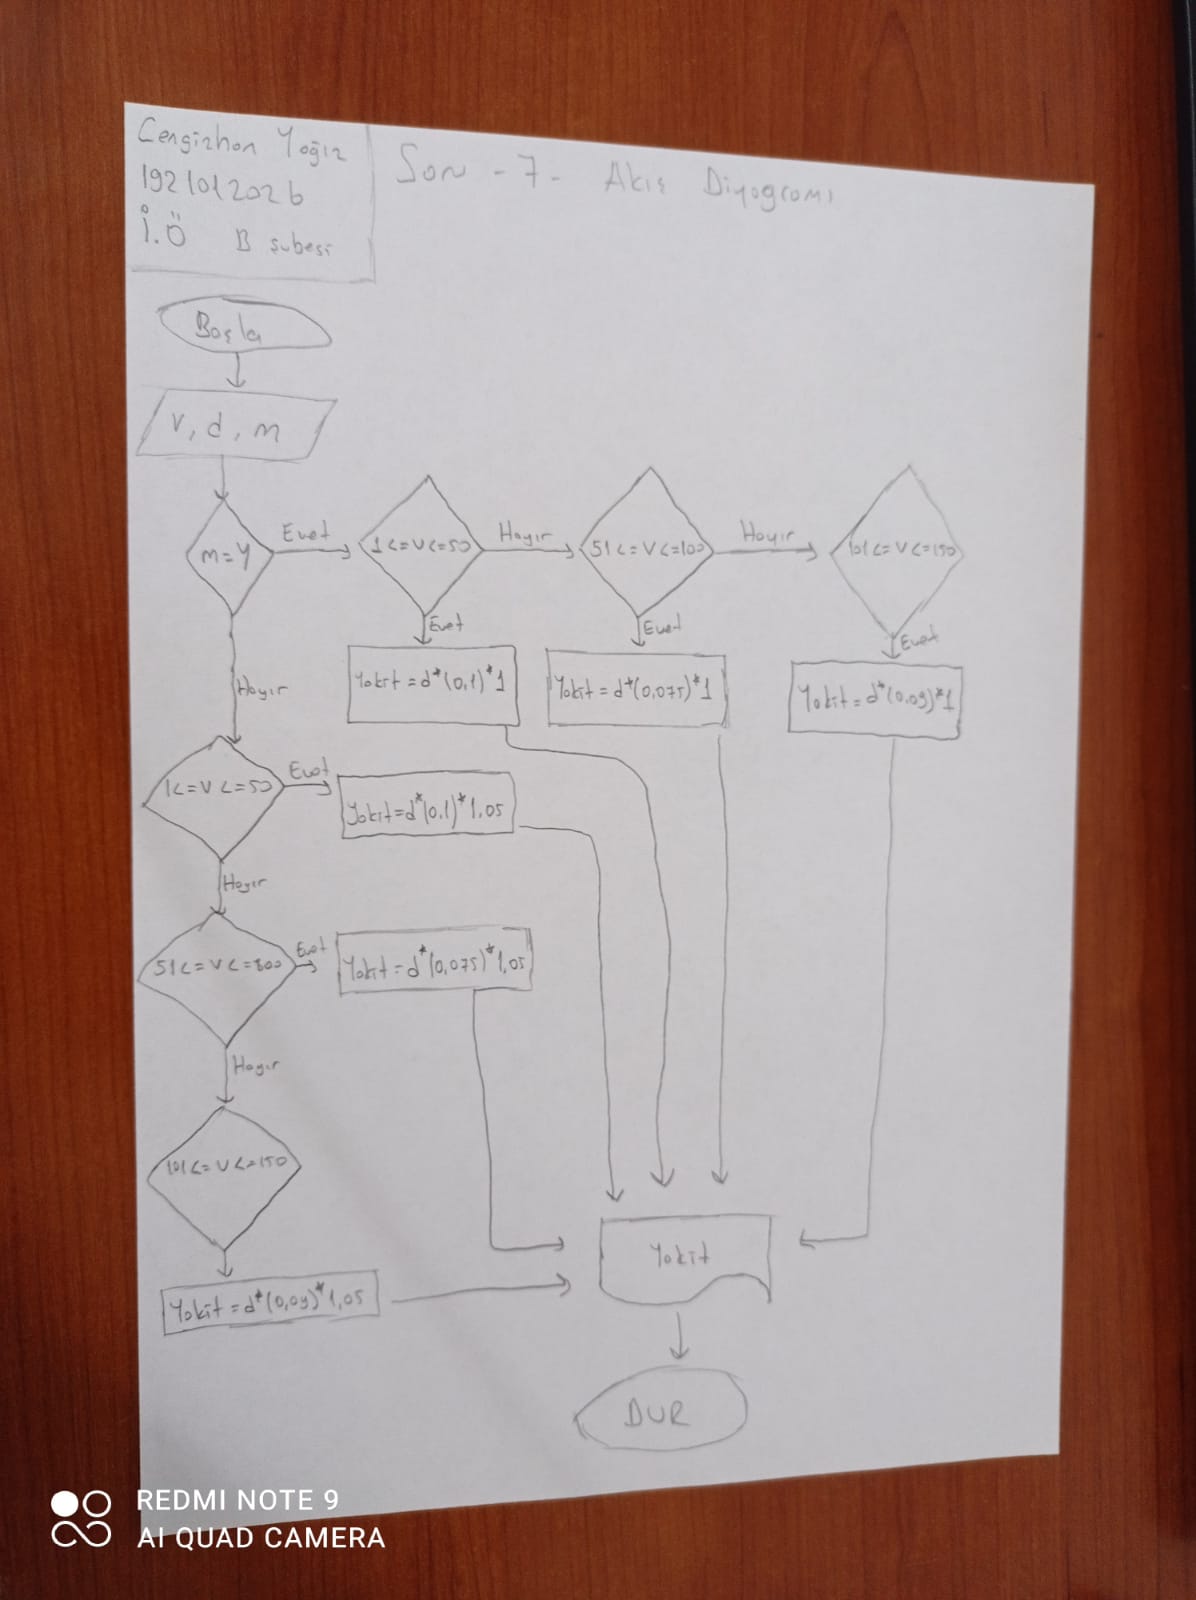 Cengizhan Yağız
1921012026
İ.Ö B şubesi
Soru - 7 - Akış Diyagramı
Başla
v, d, m
m=Y
Evet
1<=v<=50
Hayır
51<=v<=100
Hayır
101<=v<=150
Evet
Evet
Evet
Yakıt=d*(0,1)*1
Yakıt=d*(0,075)*1
Yakıt=d*(0,09)*1
Hayır
1<=v<=50
Evet
Yakıt=d*(0,1)*1,05
Hayır
51<=v<=100
Evet
Yakıt=d*(0,075)*1,05
Hayır
101<=v<=150
Yakıt=d*(0,09)*1,05
Yakıt
DUR
REDMI NOTE 9
AI QUAD CAMERA